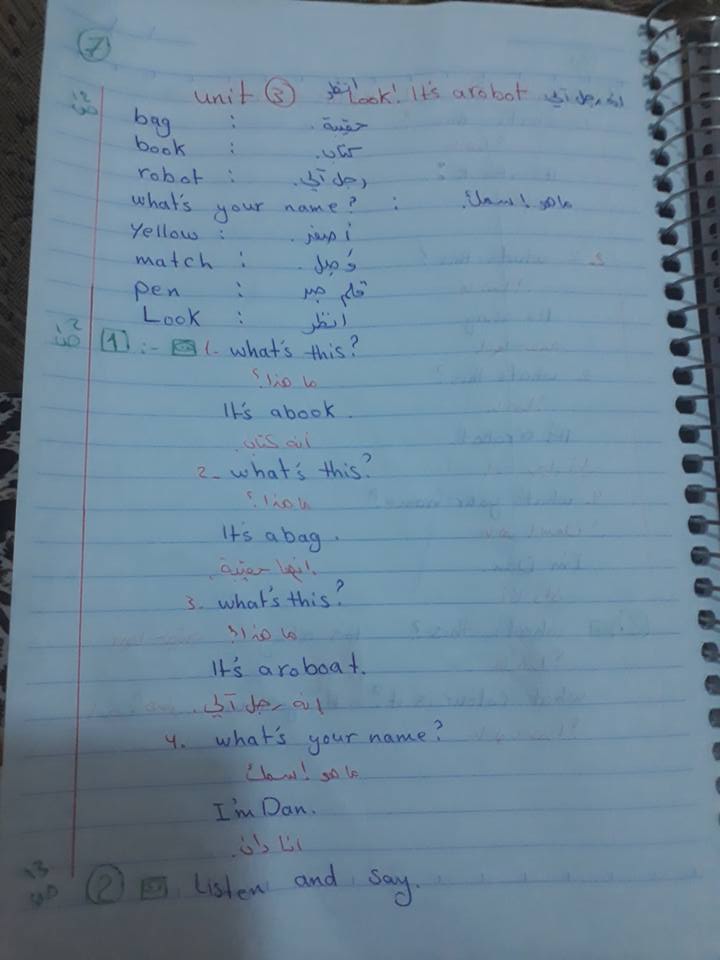 7
unit 3 انظر Look! It's arobot انه رجل آلي
١٢ ص
bag : حقيبة.
book : كتاب.
robot : رجل آلي.
what's your name? : ما هو اسمك.
Yellow : أصفر.
match : وَصِل.
pen : قلم حبر
Look : انظر
١٢ ص 1 :- 1- what's this?
ما هذا؟
It's abook.
انه كتاب.
2- what's this?
ما هذا؟
It's abag.
انها حقيبة.
3. what's this?
ما هذا؟
It's aroboat.
انه رجل آلي.
4. what's your name?
ما هو اسمك
I'm Dan.
انا دان.
١٣ ص 2 Listen and say.